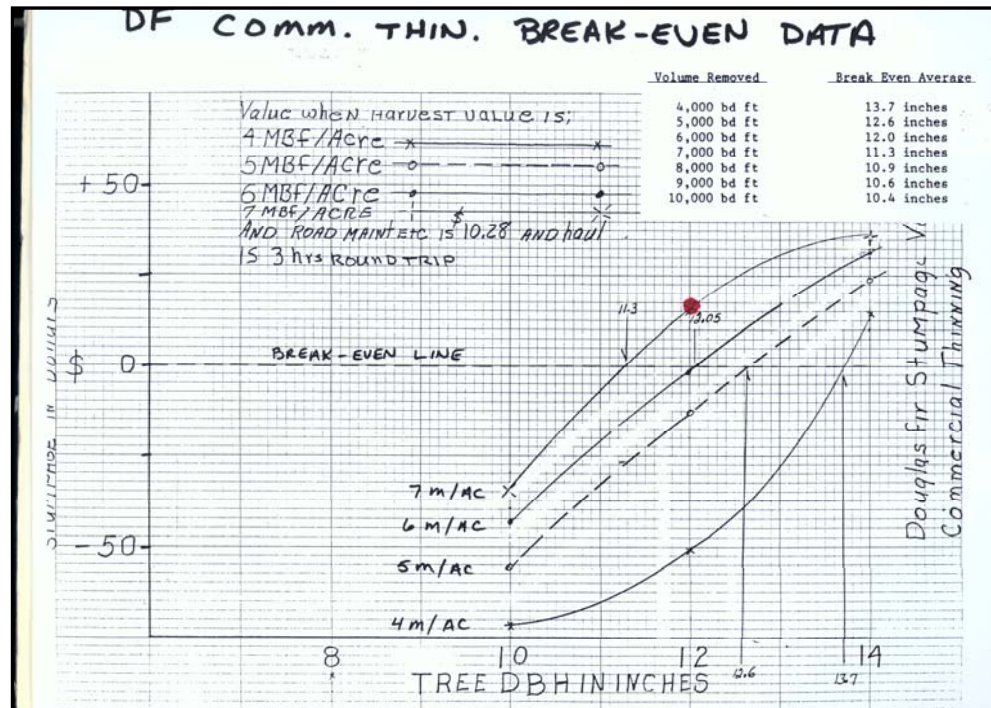 DF COMM. THIN. BREAK-EVEN DATA
Volume Removed Break Even Average
4,000 bd ft 13.7 inches
5,000 bd ft 12.6 inches
6,000 bd ft 12.0 inches
7,000 bd ft 11.3 inches
8,000 bd ft 10.9 inches
9,000 bd ft 10.6 inches
10,000 bd ft 10.4 inches
Value when HARVEST VALUE IS;
4 MBf/Acre
5MBf/ACre
6 MBf/ACre
7 MBf/ACRE
AND ROAD MAINT ETC IS $10.28 AND haul
IS 3 hrs ROUND TRIP
+50
$ 0
-50
BREAK-EVEN LINE
11.3
12.05
7 m/AC
6 m/AC
5m/AC
4m/AC
8
10
12
14
12.6
13.7
TREE DBH IN INCHES
IN
Douglas fir Stumpage
Commercial Thinning